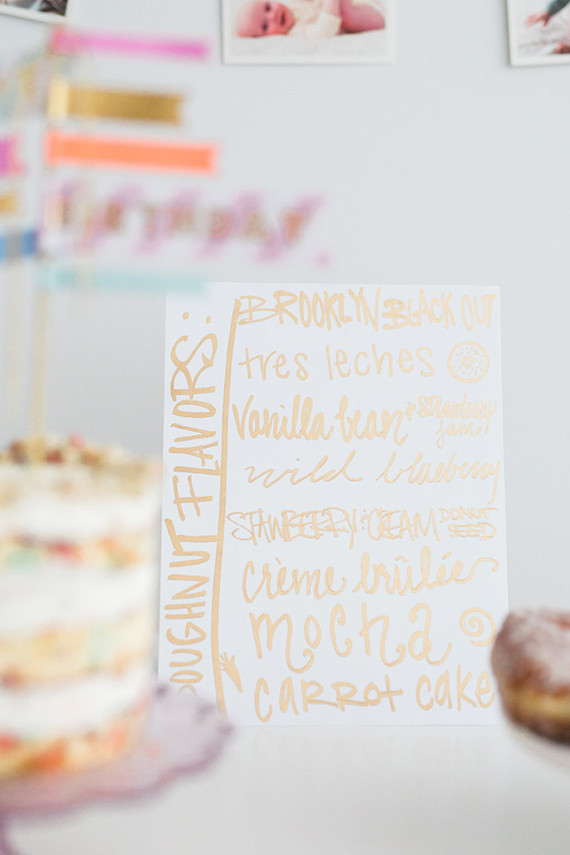 BIRTHDAY
DOUGHNUT FLAVORS:
BROOKLYN BLACK OUT
tres leches
Vanilla bean & Strawberry
jam
wild blueberry
STAWBEERY & CREAM DONUT
SEED
crème brûlée
mocha
CARROT CAKE